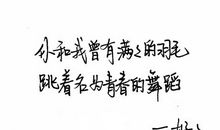 你和我曾有满々的羽毛
跳着名为青春的舞蹈